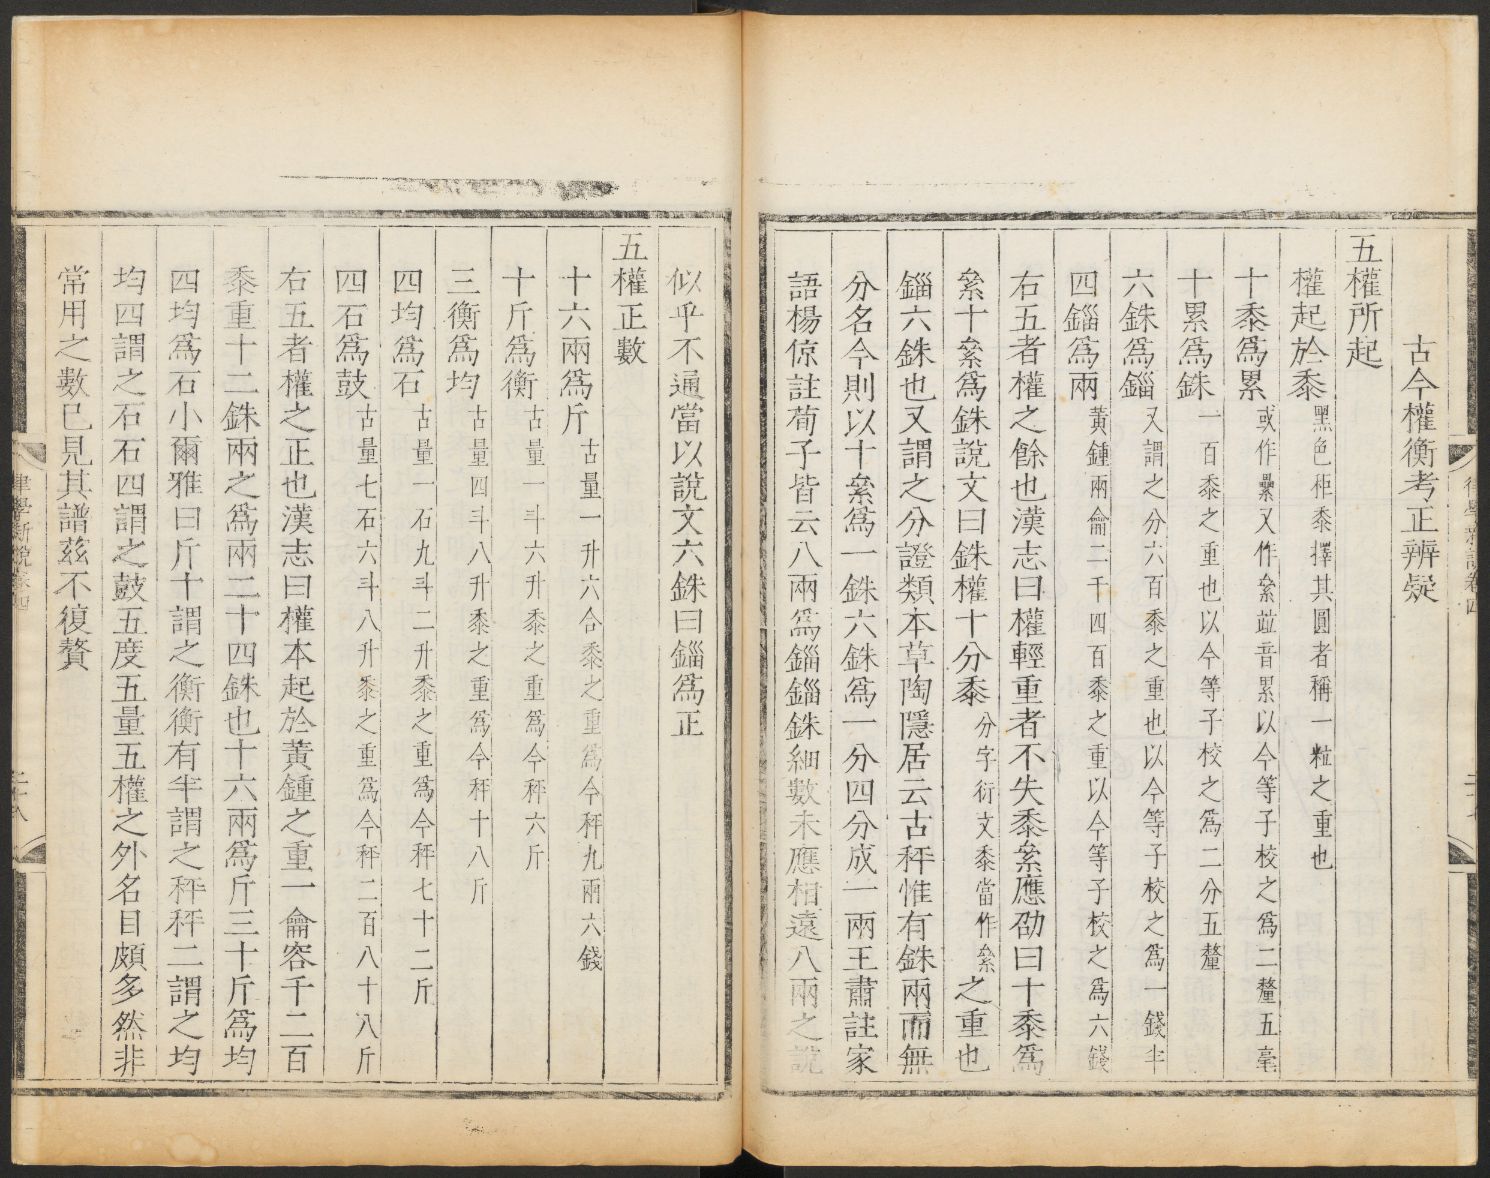 古今權衡考正辨疑
五權所起
權起於黍黑色秬黍擇其圓者稱一粒之重也
十黍爲累或作纍又作絫竝音累以今等子校之爲二釐五毫
十累爲銖一百黍之重也以今等子校之爲二分五釐
六銖爲錙又謂之分六百黍之重也以今等子校之爲一錢半
四錙爲兩黃鍾兩龠二千四百黍之重以今等子校之爲六錢
右五者權之餘也漢志曰權輕重者不失黍絫應劭曰十黍爲
絫十絫爲銖說文曰銖權十分黍分字衍文黍當作絫之重也
錙六銖也又謂之分證類本草陶隱居云古秤惟有銖兩而無
分名今則以十絫爲一銖六銖爲一分四分成一兩王肅註家
語楊倞註荀子皆云八兩爲錙錙銖細數未應相遠八兩之說
似乎不通當以說文六銖曰錙爲正
五權正數
十六兩爲斤古量一升六合黍之重爲今秤九兩六錢
十斤爲衡古量一斗六升黍之重爲今秤六斤
三衡爲均古量四斗八升黍之重爲今秤十八斤
四均爲石古量一石九斗二升黍之重爲今秤七十二斤
四石爲鼓古量七石六斗八升黍之重爲今秤二百八十八斤
右五者權之正也漢志曰權本起於黃鍾之重一龠容千二百
黍重十二銖兩之爲兩二十四銖也十六兩爲斤三十斤爲均
四均爲石小爾雅曰斤十謂之衡衡有半謂之秤秤二謂之均
均四謂之石石四謂之鼓五度五量五權之外名目頗多然非
常用之數已見其譜茲不復贅
律學新說卷四
二十八